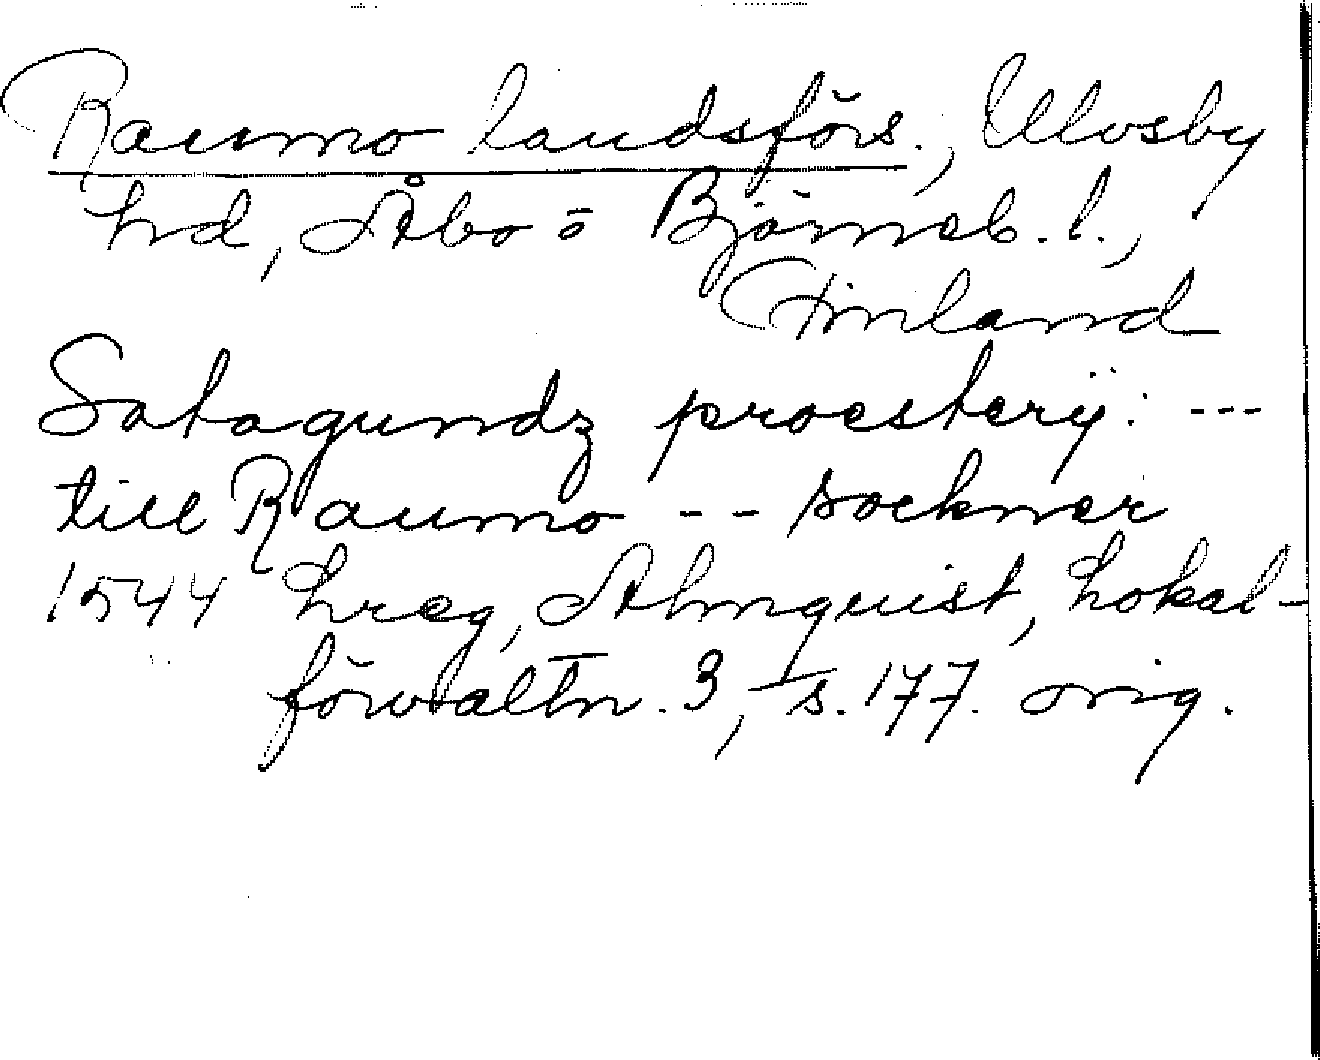 Raumo landsförs., Ulvsby
hd, Åbo o Björneb. l.,
Finland
Satagundz proesterij: ---
till Raumo -- sockner
1544 hreg, Almquist, Lokal-
förvaltn. 3, s. 177. orig.